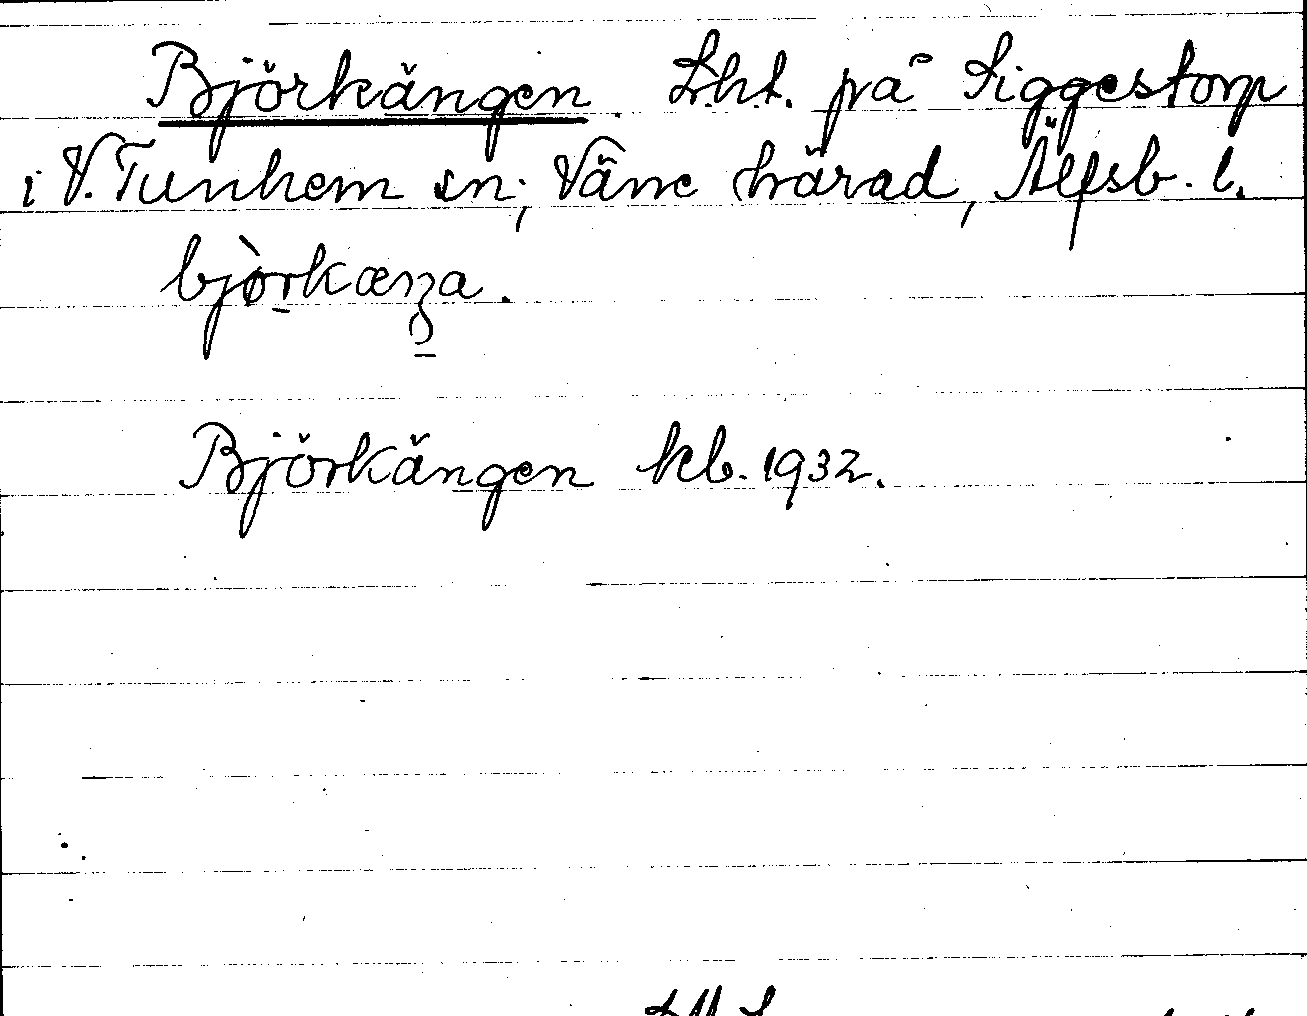 Björkängen. Lht. på Siggestorp
i V. Tunhem sn; Väne härad, Älfsb. l.
bjòrkæŋa.
Björkängen kb. 1932.